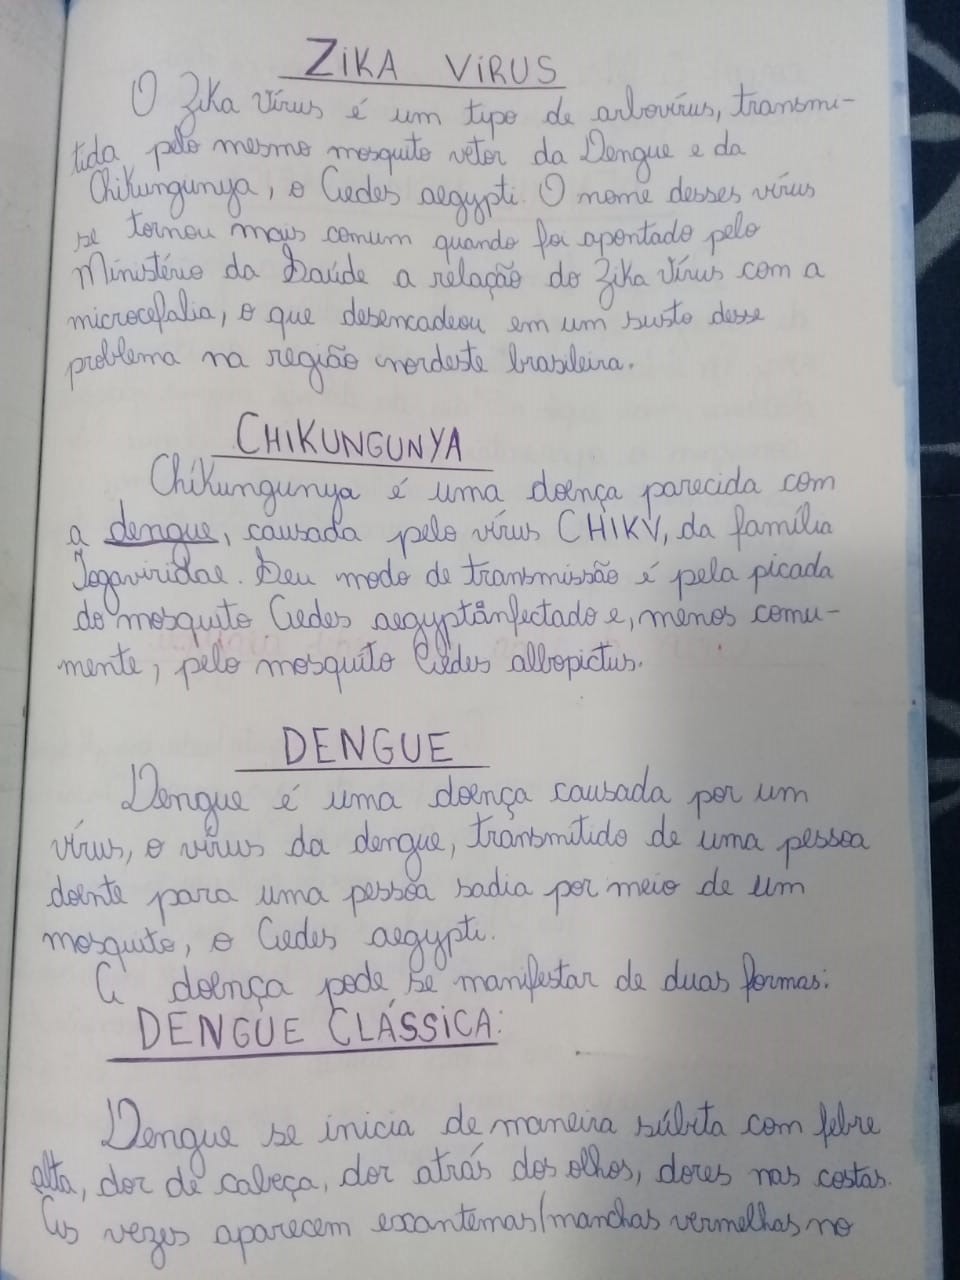 ZIKA VÍRUS
O Zika Vírus é um tipo de arbovírus, transmi-
tida pelo mesmo mosquito vetor da Dengue e da
Chikungunya, o Aedes aegypti. O nome desses vírus
se tornou mais comum quando foi apontado pelo
Ministério da Saúde a relação do Zika Vírus com a
microcefalia, o que desencadeou em um susto desse
problema na região nordeste brasileira.
CHIKUNGUNYA
Chikungunya é uma doença parecida com
a dengue, causada pelo vírus CHIKV, da família
Togaviridae. Seu modo de transmissão é pela picada
do mosquito Aedes aegypti infectado e, menos comu-
mente, pelo mosquito Aedes albopictus.
DENGUE
Dengue é uma doença causada por um
vírus, o vírus da dengue, transmitido de uma pessoa
doente para uma pessoa sadia por meio de um
mosquito, o Aedes aegypti.
A doença pode se manifestar de duas formas:
DENGUE CLÁSSICA:
Dengue se inicia de maneira súbita com febre
alta, dor de cabeça, dor atrás dos olhos, dores nas costas.
As vezes aparecem exantemas/manchas vermelhas no